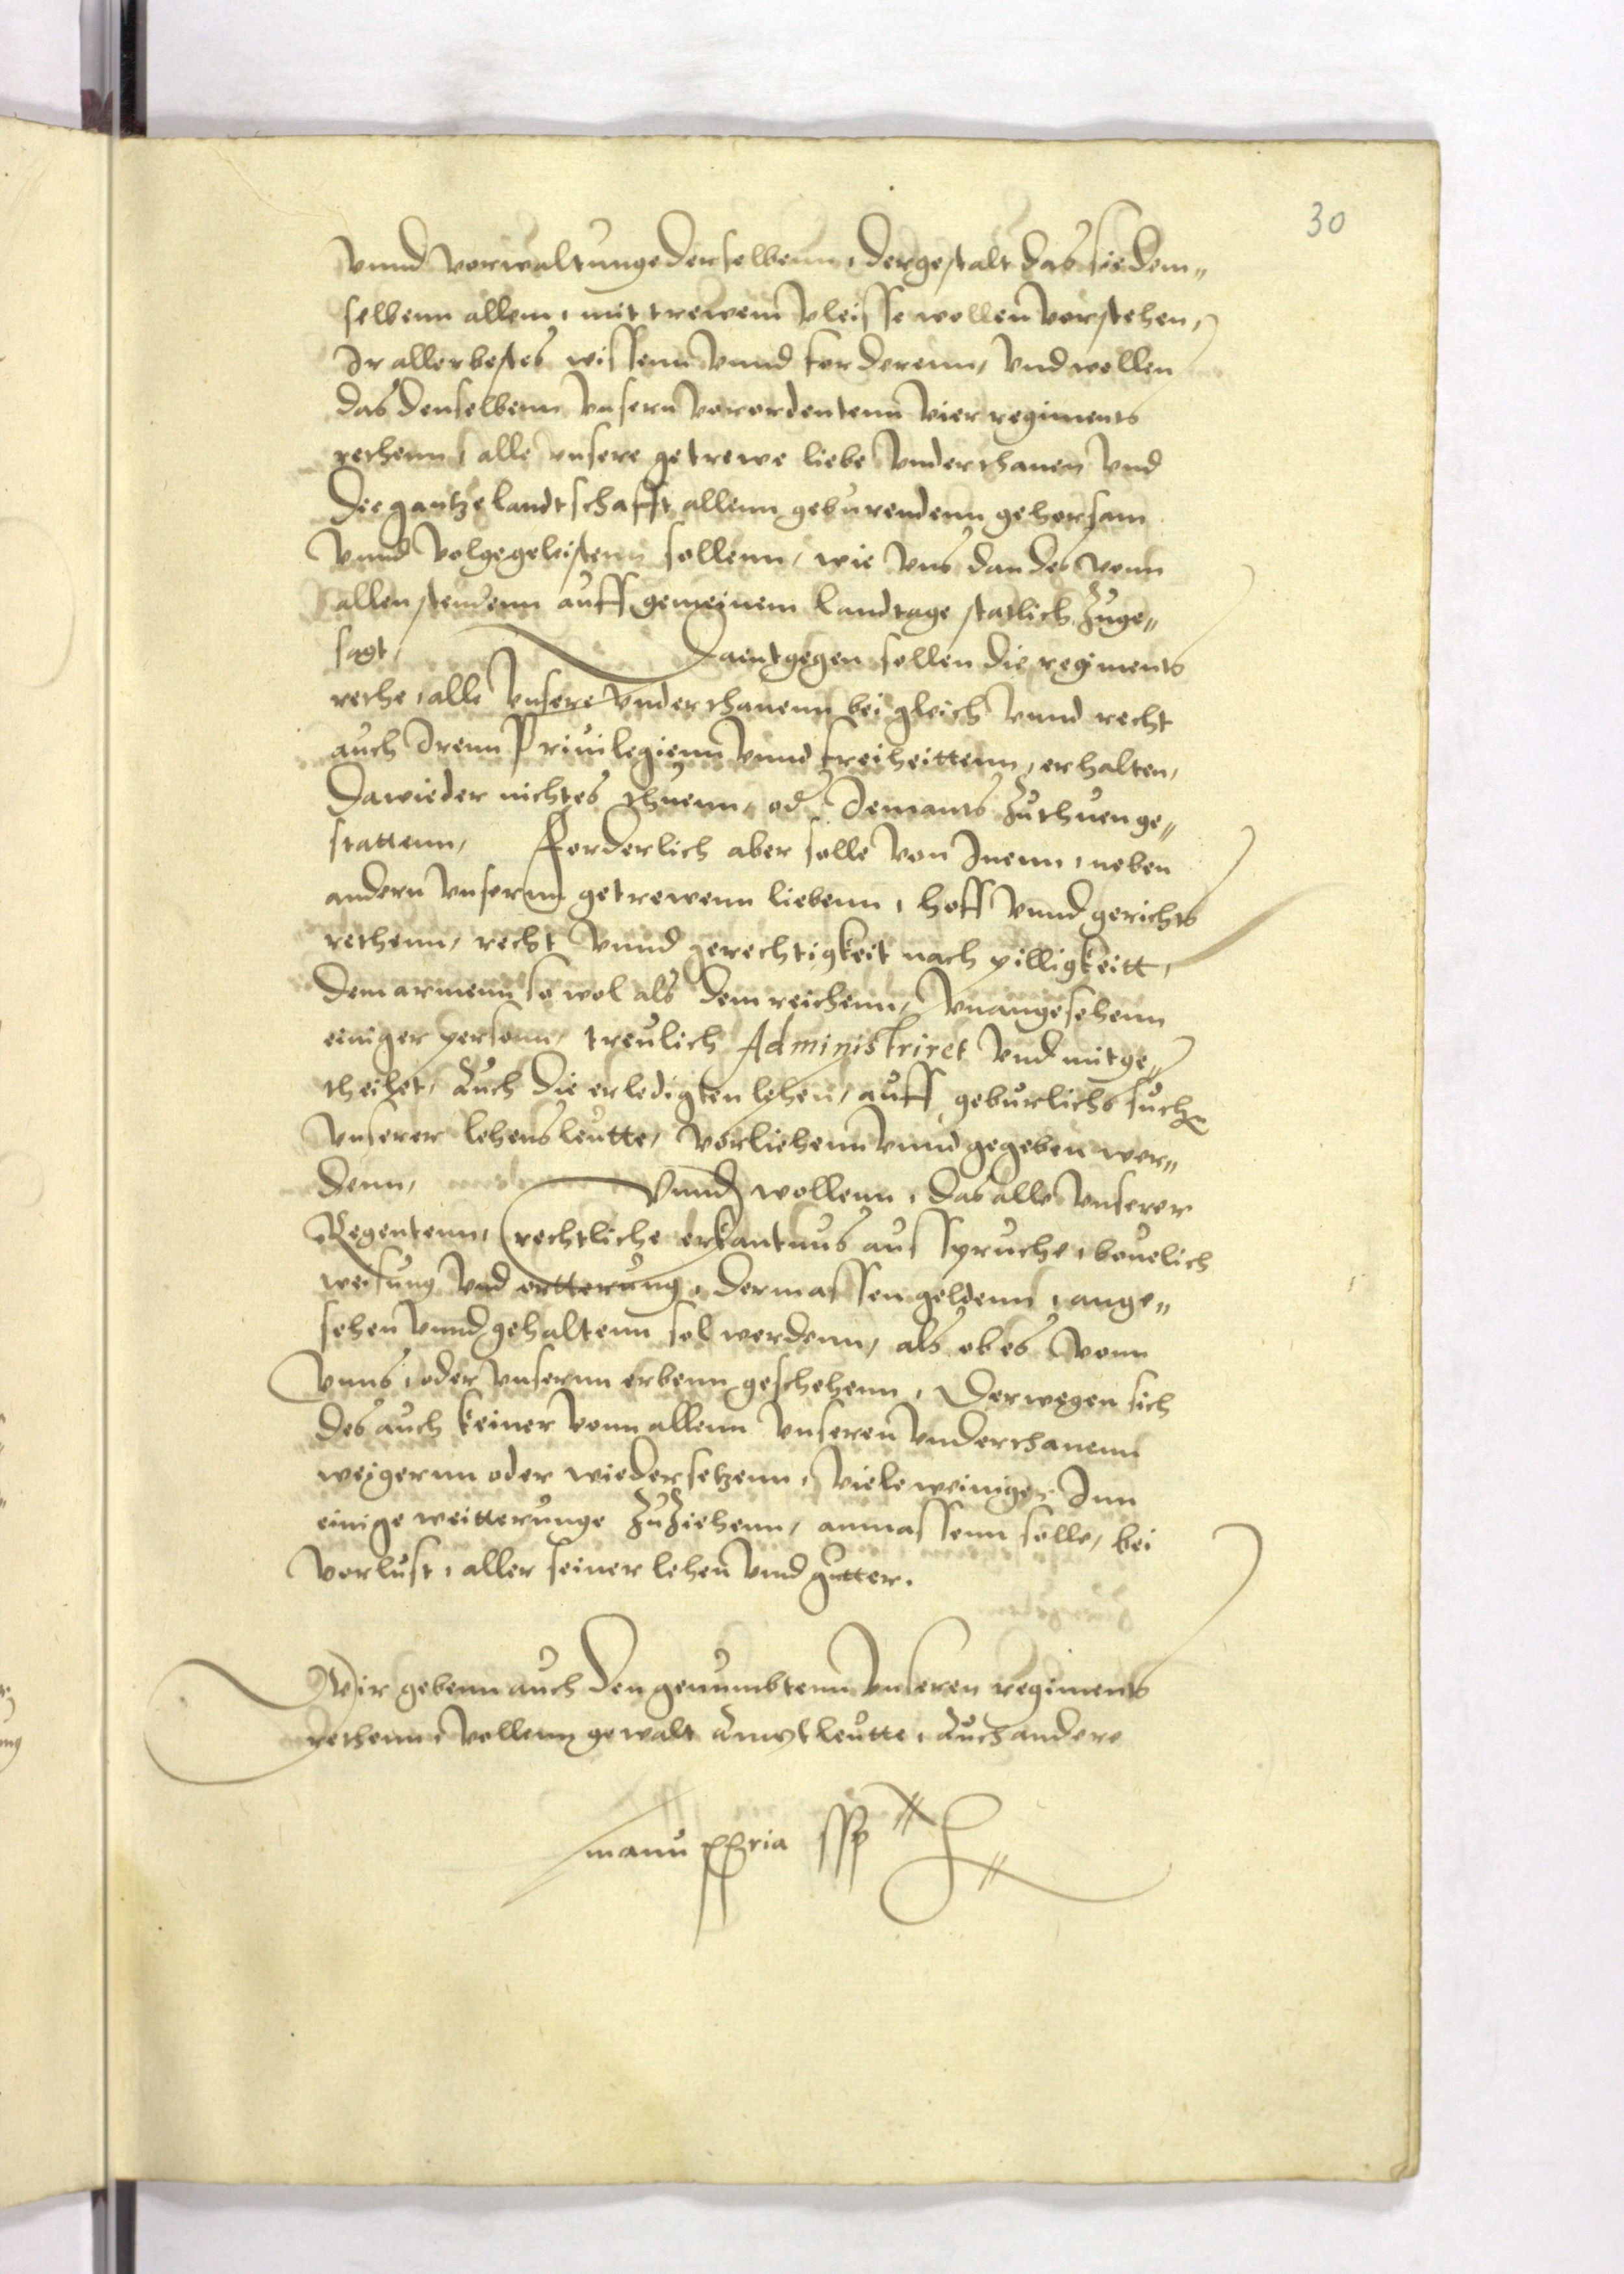 30
Vnnd vorwaltunge derselbenn, dergestalt das sie dem„
selbenn allem, mit trewem vleisse wollen vorstehen,
Ir allerbestes wissenn vnnd forderenn, vnd wollen
das denselbenn vnsern vorordentenn vier regiments
rethenn, alle vnsere getrewe liebe vnderthanen vnd
die gantze landtschafft allenn geburendenn gehorsam
vnnd volge geleistenn sollenn, wie vns dan des vonn
allen stendenn auff gemeinem landtage statlich zuge„
sagt, Daentgegen sollen die regiments
rethe, alle vnsere vnderthanenn bei gleich vnnd recht
auch Irenn Priuilegienn vnnd freiheittenn, erhalten,
Dawieder nichtes thuenn, od Iemants zuthuen ge„
stattenn, Forderlich aber solle von Inenn, neben
andern vnsernn getrewenn liebenn, hoff vnnd gerichts
rethenn, recht vnnd gerechtigkeit nach pilligkeitt,
dem armenn so wol als dem reichenn, vnangesehenn
einiger personn, treulich Administriret vnd mitge„
theilet, Auch die erledigten lehen, auff geburlichs such
vnserer lehensleutte, vorliehenn vnnd gegeben wer„
denn, Vnnd wollenn, das alle vnserer
Regentenn, rechtliche erkantnus ausspruche, beuelich
weisung vnd ortterung, dermassen geldenn, ange„
sehen vnnd gehaltenn sol werdenn, als ob es vonn
vnns, oder vnsernn erbenn geschehenn, Derwegen sich
des auch keiner vonn allenn vnseren vnderthanenn
weigernn oder wiedersetzenn, viele weiniger Inn
einige weitterunge zuziehenn, anmassenn solle, bei
vorlust, aller seiner lehen vnd gutter.
Wir gebenn auch den genumbtenn vnseren regiments
rethenn, vollenn gewalt Amptleutte, Auch andere
manu ppria ssp